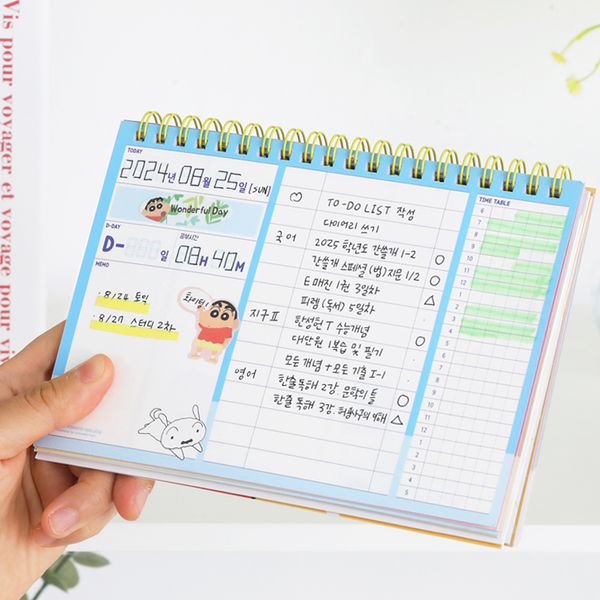 Vis pour voyager et voyage pour vi
TODAY
2024년 08월 25일 [SUN]
Wonderful Day
D-DAY
D- 일
공부시간
08H 40M
MEMO
· 8/24 토익
· 8/27 스터디 2차
화이팅!
TO-DO LIST 작성
다이어리 쓰기
국어
2025 학년도 간쓸개 1-2
간쓸개 스페셜 (법) 지문 1/2
E 매진 1권 3일차
피램 (독서) 5일차
지구 II
한성헌 T 수능개념
대단원 1 복습 및 필기
모든 개념 + 모든 기출 I-1
영어
한줄독해 2강. 문학의 틀
한줄 독해 3강.
TIME TABLE
6
7
8
9
10
11
12
1
2
3
4
5
6
7
8
9
10
11
12
1
2
3
4
5